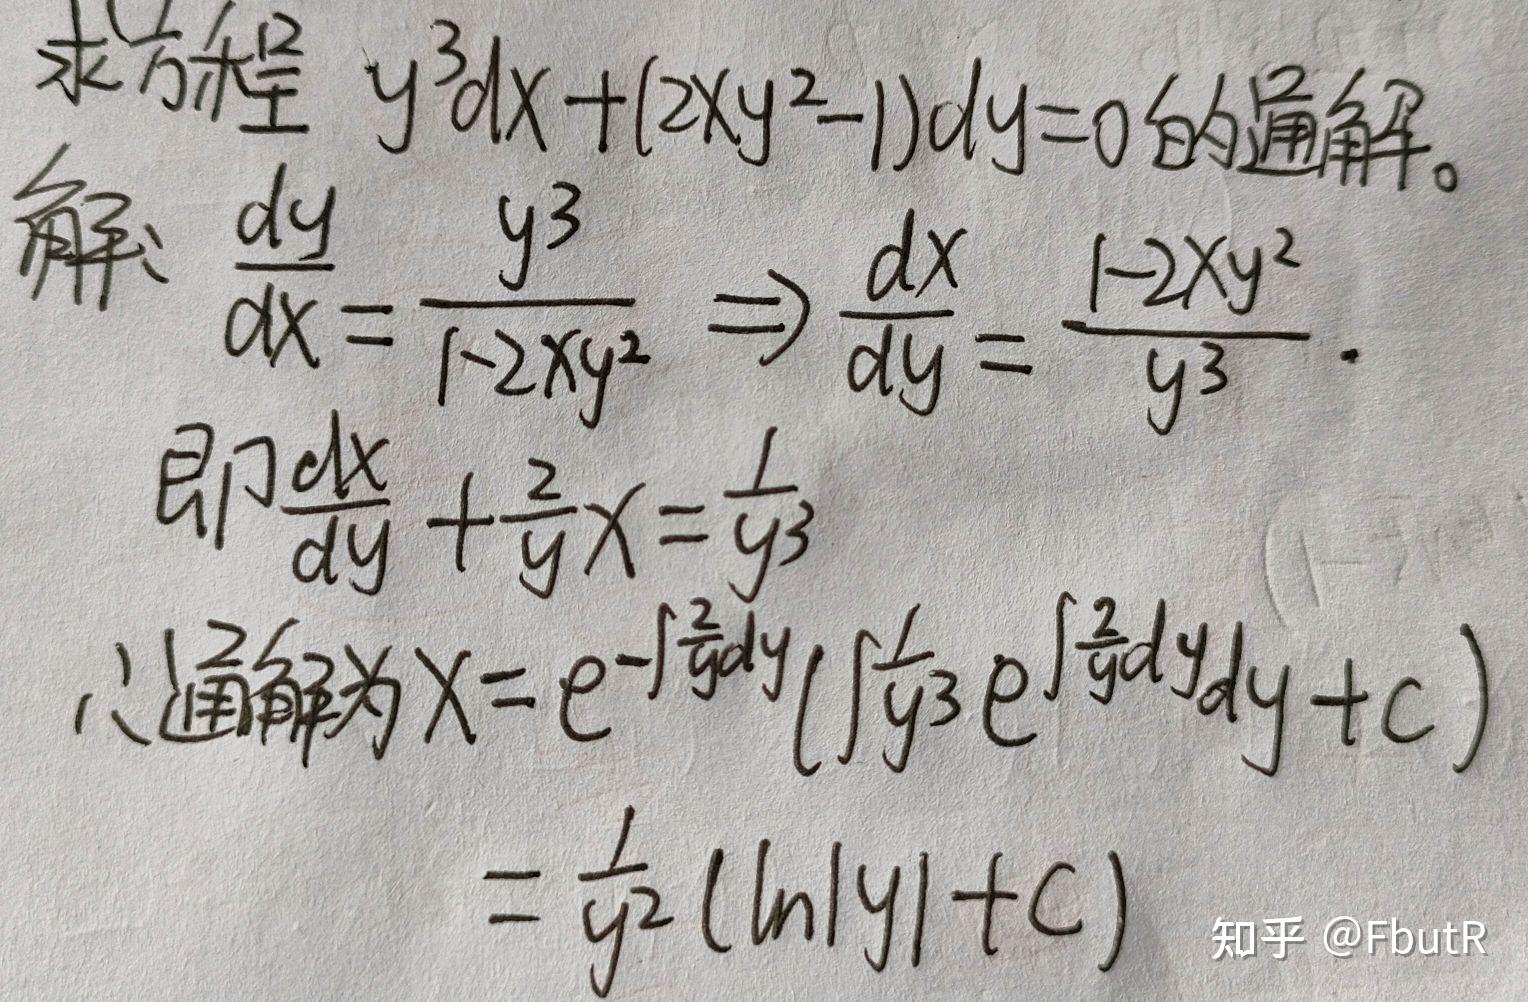 求方程 y³dx+(2xy²-1)dy=0的通解。
解: dy/dx = y³/(1-2xy²) ⇒ dx/dy = (1-2xy²)/y³.
即 dx/dy + (2/y)x = 1/y³
∴通解为 x = e^(-∫(2/y)dy) (∫(1/y³)e^(∫(2/y)dy)dy+c)
= (1/y²)(ln|y|+c)
知乎 @FbutR